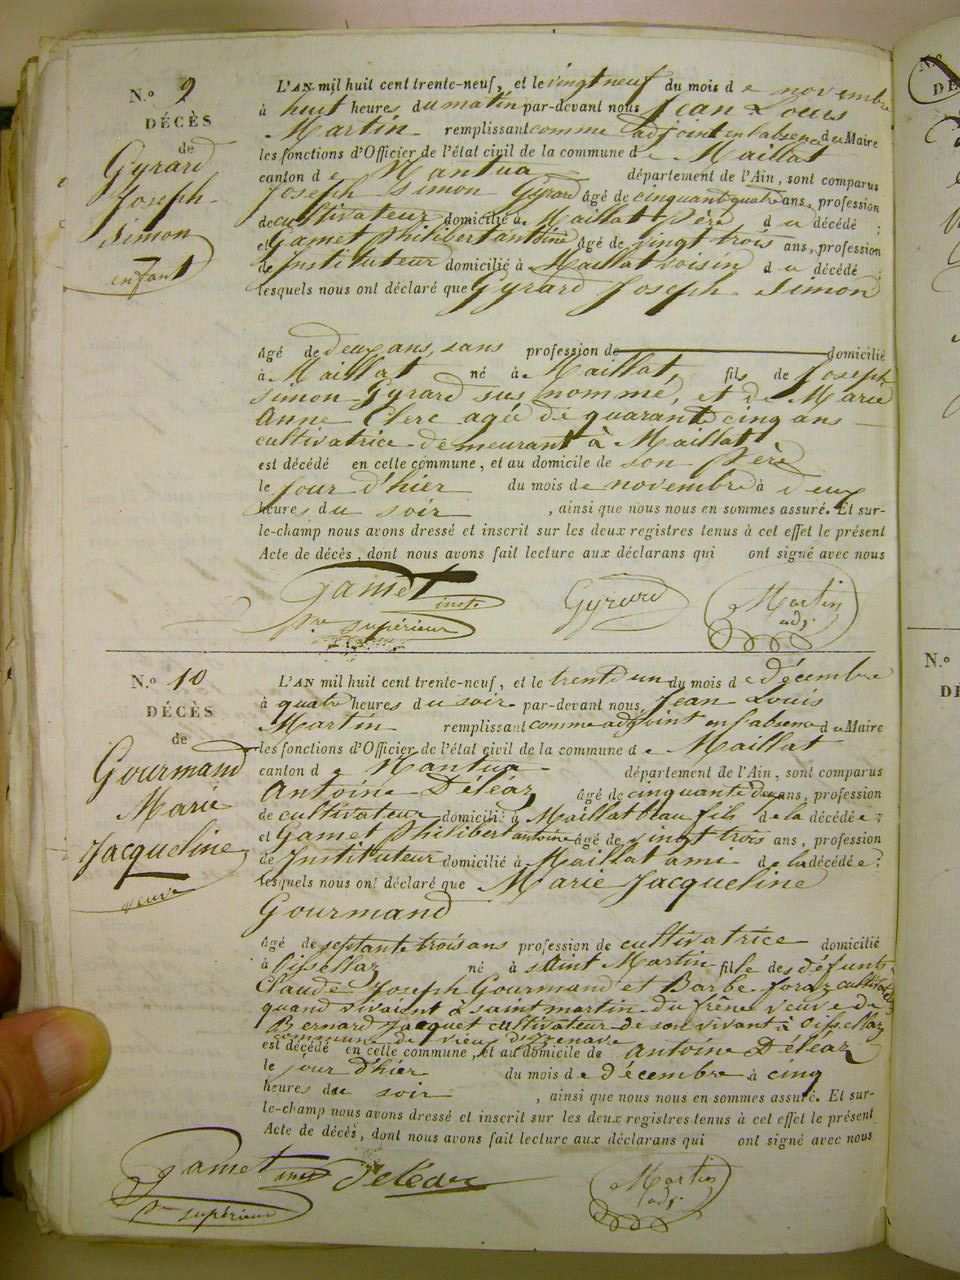 N.º 9
DÉCÈS
de
Gyrard
Joseph
Simon
enfant
L'AN mil huit cent trente-neuf, et le vingt neuf du mois de novembre
à huit heures du matin par-devant nous Jean Louis
Martin remplissant comme adjoint en l'absence du Maire
les fonctions d'Officier de l'état civil de la commune de Maillat
canton de Nantua département de l'Ain, sont comparus
Joseph Simon Gyrard âgé de cinquante quatre ans, profession
de cultivateur domicilié à Maillat Père du décédé ;
et Gamet Philibert antoine âgé de vingt trois ans, profession
de Instituteur domicilié à Maillat voisin du décédé ;
lesquels nous ont déclaré que Gyrard Joseph Simon
âgé de deux ans, sans profession de domicilié
à Maillat né à Maillat, fils de Joseph
simon Gyrard sus nommé, et de Marie
Anne Clerc agée de quarante cinq ans
cultivatrice demeurant à Maillat
est décédé en cette commune, et au domicile de son Père
le jour d'hier du mois de novembre à deux
heures du soir , ainsi que nous nous en sommes assuré. Et sur-
le-champ nous avons dressé et inscrit sur les deux registres tenus à cet effet le présent
Acte de décès, dont nous avons fait lecture aux déclarans qui ont signé avec nous
Gamet Gyrard Martin
supérieur adj.
N.º 10
DÉCÈS
de
Gourmand
Marie
Jacqueline
veuve
L'AN mil huit cent trente-neuf, et le trente un du mois de décembre
à quatre heures du soir par-devant nous, Jean Louis
Martin remplissant comme adjoint en l'absence du Maire
les fonctions d'Officier de l'état civil de la commune de Maillat
canton de Nantua département de l'Ain, sont comparus
Antoine Déléaz âgé de cinquante deux ans, profession
de cultivateur domicilié à Maillat beau fils de la décédée ;
et Gamet Philibert antoine âgé de vingt trois ans, profession
de Instituteur domicilié à Maillat ami de la décédée ;
lesquels nous ont déclaré que Marie Jacqueline
Gourmand
âgé de septante trois ans profession de cultivatrice domicilié
à Oisellaz né à saint Martin fille des défunts
Claude Joseph Gourmand et Barbe
quand vivaient à saint martin du frêne veuve de
Bernard Jacquet cultivateur de son vivant à Oisellaz
commune de vieu d'izenave
est décédé en cette commune, et au domicile de Antoine Déléaz
le jour d'hier du mois de décembre à cinq
heures du soir , ainsi que nous nous en sommes assuré. Et sur-
le-champ nous avons dressé et inscrit sur les deux registres tenus à cet effet le présent
Acte de décès, dont nous avons fait lecture aux déclarans qui ont signé avec nous
Gamet Déléaz Martin
supérieur adj.
N.º